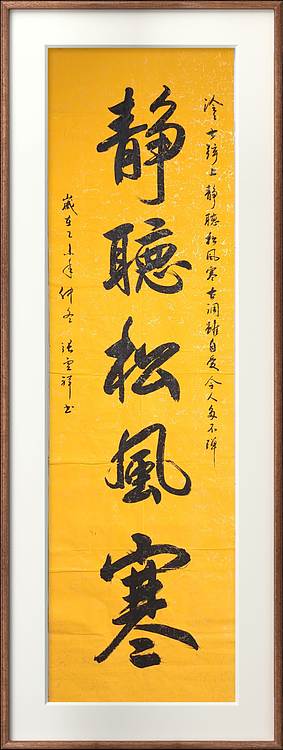 泠七弦上靜聽松風寒古調雖自愛今人多不彈
靜聽松風寒
歲在乙未年仲冬張雲祥書